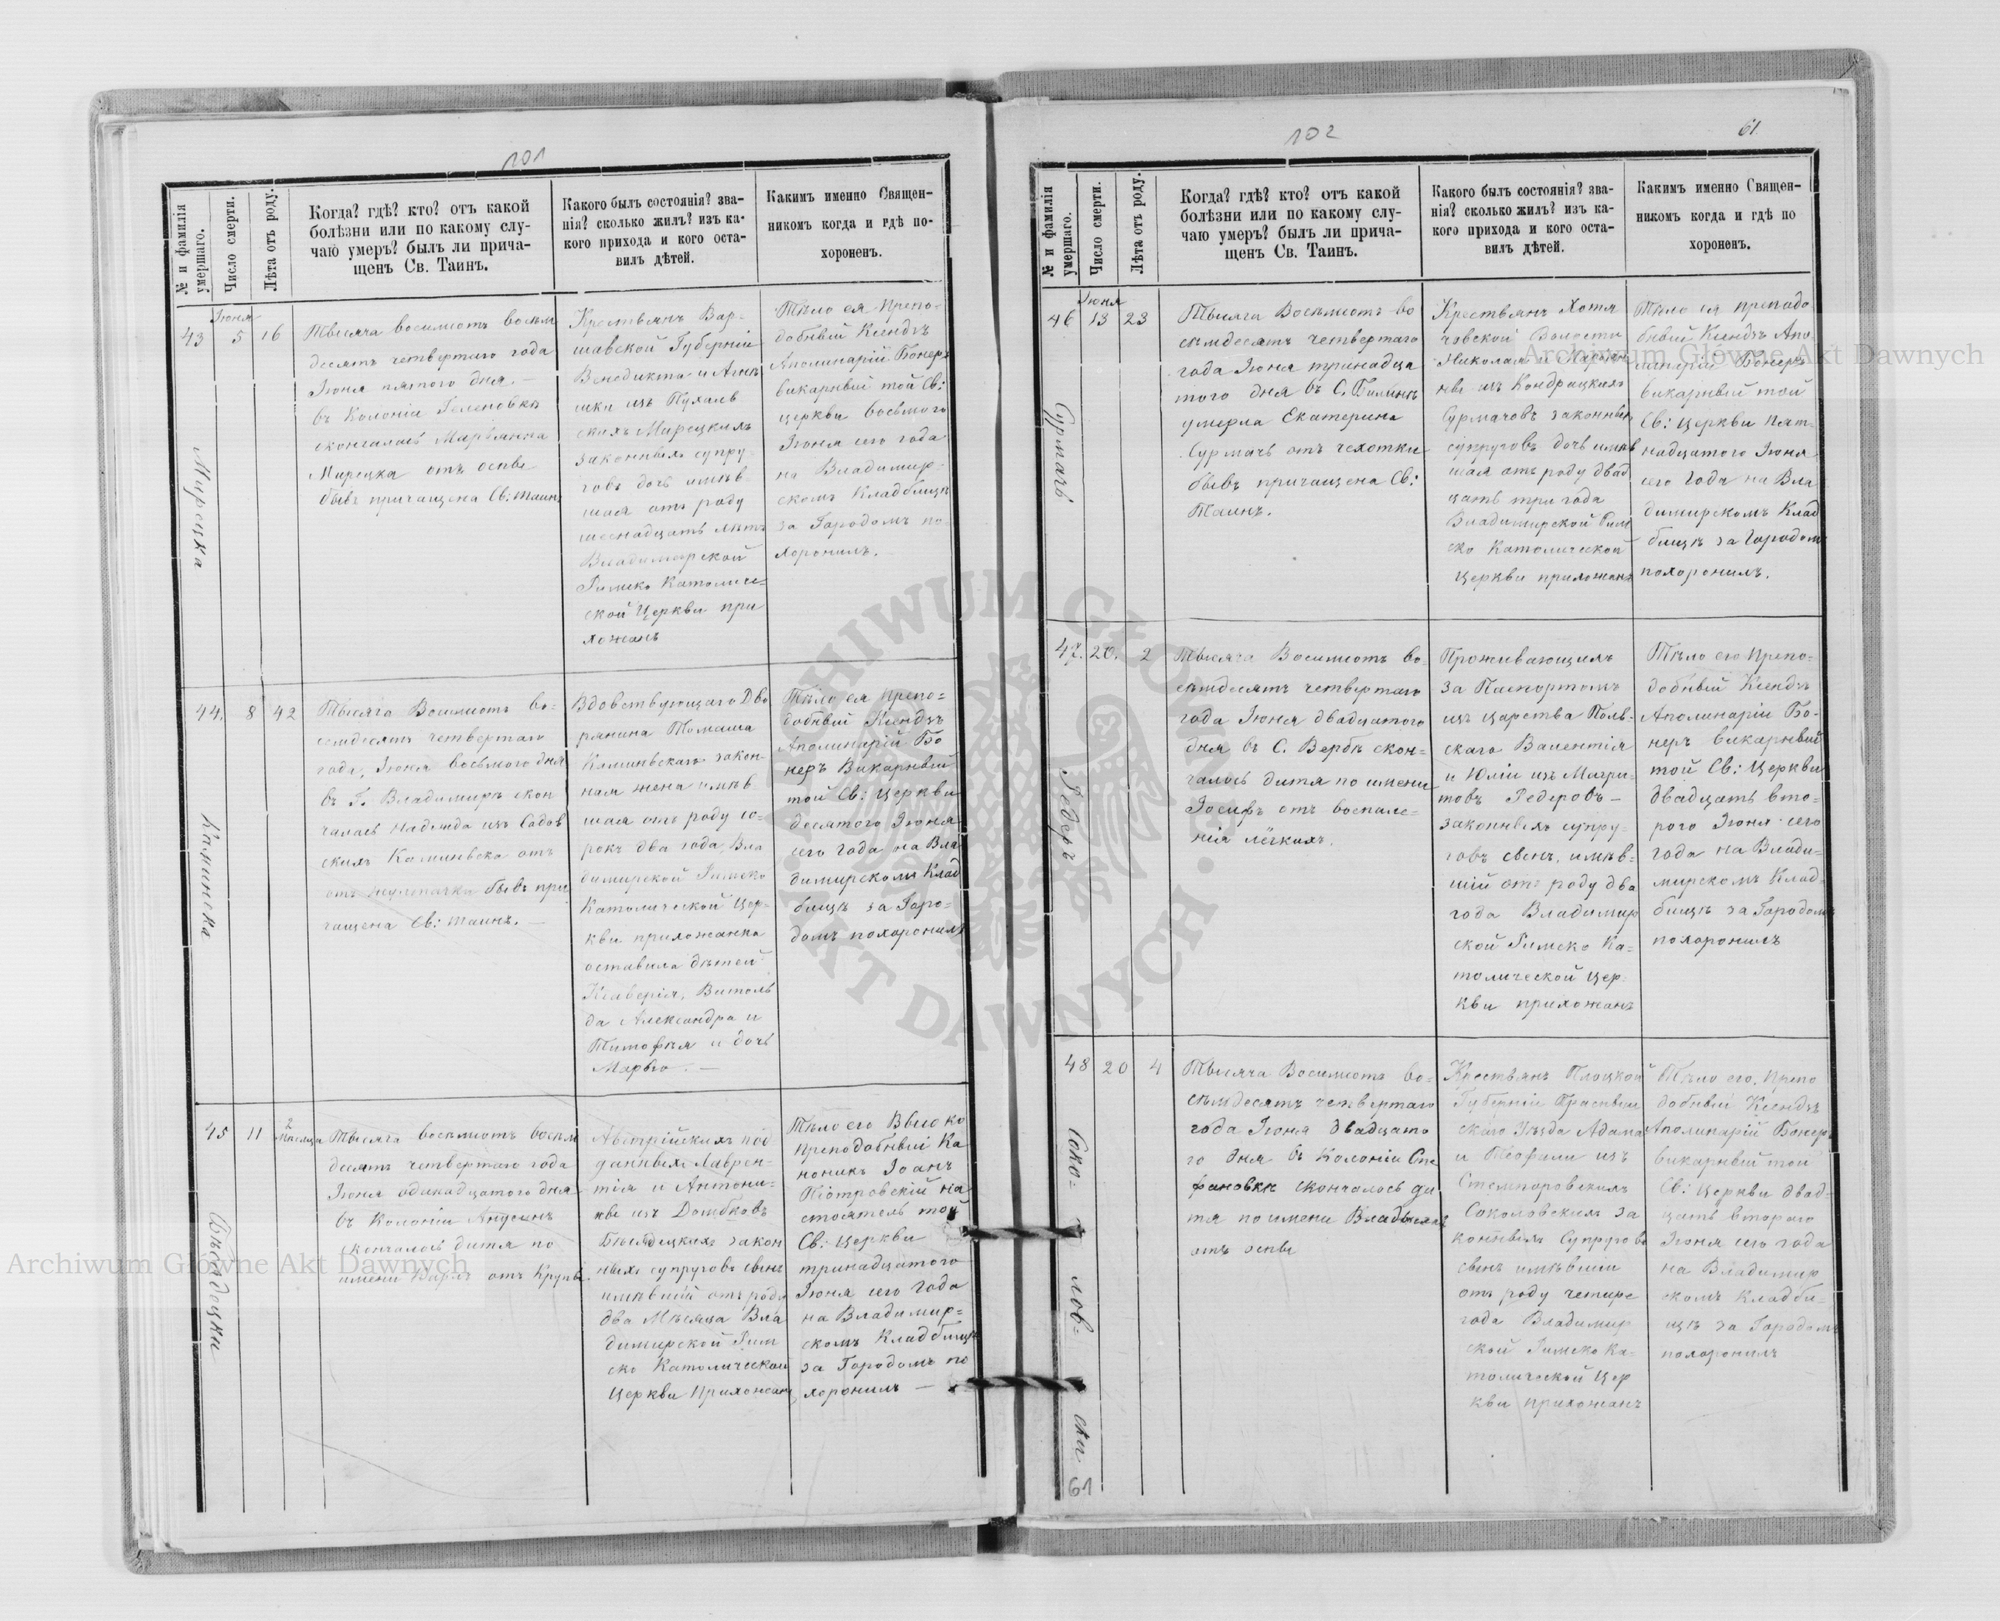 101
№ и фамилія умершаго.
Число смерти.
Лѣта отъ роду.
Когда? гдѣ? кто? отъ какой
болѣзни или по какому слу-
чаю умеръ? былъ ли прича-
щенъ Св. Таинъ.
Какого былъ состоянія? зва-
нія? сколько жилъ? изъ ка-
кого прихода и кого оста-
вилъ дѣтей.
Какимъ именно Священ-
никомъ когда и гдѣ по-
хороненъ.
Іюня
43 5 16
Мурецка
Тысяча восемьсотъ восем
десятъ четвертаго года
Іюня пятого дня. —
въ Колоніи
скончалась Марьянна
отъ оспы
бывъ причащена Св: таинъ
Крестьянъ Вар-
шавской Губерніи
Венедикта и Агне
шки изъ Пухаль
скихъ Мирецкихъ
законныхъ супру-
говъ дочь имѣв-
шая отъ роду
шеснадцать лѣтъ
Владимирской
Римско Католиче-
ской Церкви при
хожанъ
Тѣло ея Препо-
добный Ксендзъ
Аполинарій Бонеръ
викарный той Св:
церкви восьмого
Іюня сего года
на Владимир-
скомъ Кладбищѣ
за Городомъ по-
хоронилъ. —
44. 8 42
Каминска
Тысяча Восемьсотъ во-
семдесятъ четвертаго
года, Іюня восьмого дня
въ Г. Владимирѣ скон
чалась Надежда изъ Садов
скихъ Каминьска отъ
бывъ при
чащена Св: таинъ. —
Вдовствующаго Дво
рянина Томаша
Каминьскаго закон-
ная жена имѣв
шая отъ роду со-
рокъ два года, Вла
димирской Римско
Католической Цер-
кви прихожанка
оставила дѣтей:
Ксаверія, Витоль
да Александра и
Тимофея и дочь
Марью. —
Тѣло ея Препо-
добный Ксендзъ
Аполинарій Бо
неръ Викарный
той Св: Церкви
десятого Іюня
сего года на Вла
димирскомъ Клад
бищѣ за Горо-
домъ похоронилъ
45 11 2 Мѣсяца
Бѣлѧдецки
Тысяча восемьсотъ восем
десятъ четвертаго года
Іюня одинадцатого дня
въ Колоніи
скончалось дитя по
имени Карлъ отъ Крупы.
Австрійскихъ под
данныхъ Лаврен-
тія и Антони-
ны изъ Домбковъ
закон
ныхъ супруговъ сынъ
имѣвшій отъ роду
два Мѣсяца Вла
димирской Рим
ско Католической
Церкви Прихожанъ
Тѣло его Высоко
преподобный Ка
ноникъ Іоанъ
Піотровскій на
стоятель той
Св: Церкви
тринадцатого
Іюня сего года
на Владимир-
скомъ Кладбищѣ
за Городомъ по
хоронилъ —
102
61
№ и фамилія умершаго.
Число смерти.
Лѣта отъ роду.
Когда? гдѣ? кто? отъ какой
болѣзни или по какому слу-
чаю умеръ? былъ ли прича-
щенъ Св. Таинъ.
Какого былъ состоянія? зва-
нія? сколько жилъ? изъ ка-
кого прихода и кого оста-
вилъ дѣтей.
Какимъ именно Священ-
никомъ когда и гдѣ по
хороненъ.
Іюня
46 13 23
Сурмачъ
Тысяча Восемьсотъ во
семдесятъ четвертаго
года Іюня тринадца
того дня въ С.
умерла Екатерина
Сурмачъ отъ чехотки
бывъ причащена Св:
Таинъ.
Крестьянъ Хотя
човской Волости
Николая и Марьян
ны изъ Кондрацкихъ
Сурмачовъ законныхъ
супруговъ дочь имѣв
шая отъ роду двад
цать три года
Владимирской Рим
ско Католической
Церкви прихожанъ
Тѣло ея преподо
бный Ксендзъ Апо
линарій Бонеръ
викарный той
Св: Церкви Пят-
надцатого Іюня
сего Года на Вла
димирскомъ Клад
бищѣ за Городомъ
похоронилъ.
47. 20. 2
Редеръ
Тысяча Восемьсотъ во-
семдесятъ четвертаго
года Іюня двадцатого
дня въ С. Вербѣ скон-
чалось дитя по имени
Іосифъ отъ воспале-
нія лёгкихъ.
Проживающихъ
за Паспортомъ
изъ царства Поль-
скаго Валентія
и Юліи изъ
Редеровъ —
законныхъ супру-
говъ сынъ, имѣв-
шій отъ роду два
года Владимир
ской Римско Ка-
толической Цер-
кви прихожанъ
Тѣло его Препо-
добный Ксендзъ
Аполинарій Бо-
неръ викарный
той Св: Церкви
двадцать вто-
рого Іюня сего
года на Влади-
мирскомъ Клад-
бищѣ за Городомъ
похоронилъ
48 20 4
Соко-
лов-
ски
Тысяча Восемьсотъ во-
семдесятъ четвертаго
года Іюня двадцато
го дня въ Колоніи Сте
фановкѣ скончалось ди
тя по имени Владиславъ
отъ оспы
Крестьянъ Плоцкой
Губерніи Прасныш
скаго Уѣзда Адама
и Теофили изъ
Стемпоровскихъ
Соколовскихъ за
конныхъ Супруговъ
сынъ имѣвшій
отъ роду четыре
года Владимир
ской Римско Ка-
толической Цер
кви прихожанъ
Тѣло его, Препо
добный Ксендзъ
Аполинарій Бонеръ
викарный той
Св: Церкви двад-
цать второго
Іюня сего года
на Владимир
скомъ Кладби-
щѣ за Городомъ
похоронилъ
61
Archiwum Główne Akt Dawnych
Archiwum Główne Akt Dawnych
ARCHIWUM GŁÓWNE AKT DAWNYCH